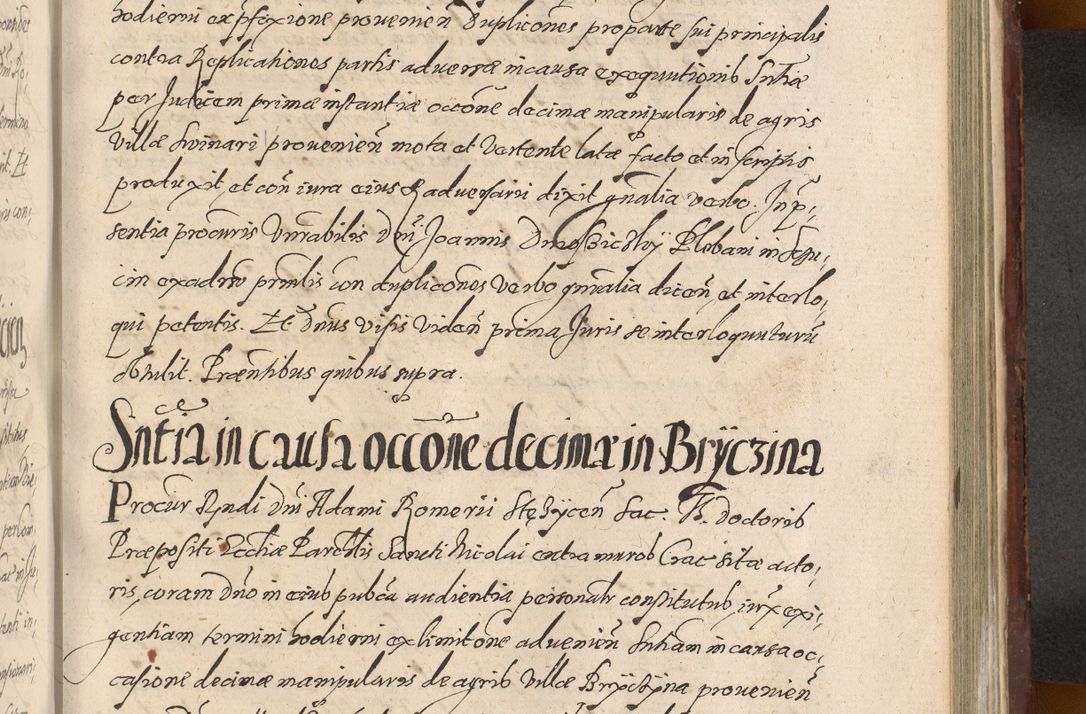 hodierni ex p̃fixione provenien̄ Duplicões pro parte sui principalis
contra Replicationes partis adversæ in causa exequutionis Sntiæ
per Judicem primæ instantiæ occõne decimæ manipularis de agris
villæ Swinari provenien̄ mota et Vertente latæ facto et in scriptis
produxit, et con̄ iura eius & adversarii dixit gñalia verbo. In p̃
sentia procuris Vnrabilis Dñi Joannis Plebani in
cin ex adrso prñtis con duplicões verbo gñralia dicen̄ et interlo,
qui petentis. Et Dñus visis viden̄ prima Juris se interloquuturũ
obtulit. Præntibus quibus supra.
Snt̃ia in causa occõne decimæ in Brÿczina
Procur Rndi Dñi Adami Romerii Stęzÿcen̄ Sac. Th. Doctoris
Præpositi Eccliæ Parchlis Sancti Nicolai extra muros Crac sitæ acto,
ris, coram Dño in eius pubca audientia personalr constitutus, iuxta exi,
gentiam termini hodierni ex limitõne advenien̄ Sntiam in causa oc,
casione decimæ manipularis de agris Villæ Brÿczÿna provenien̄